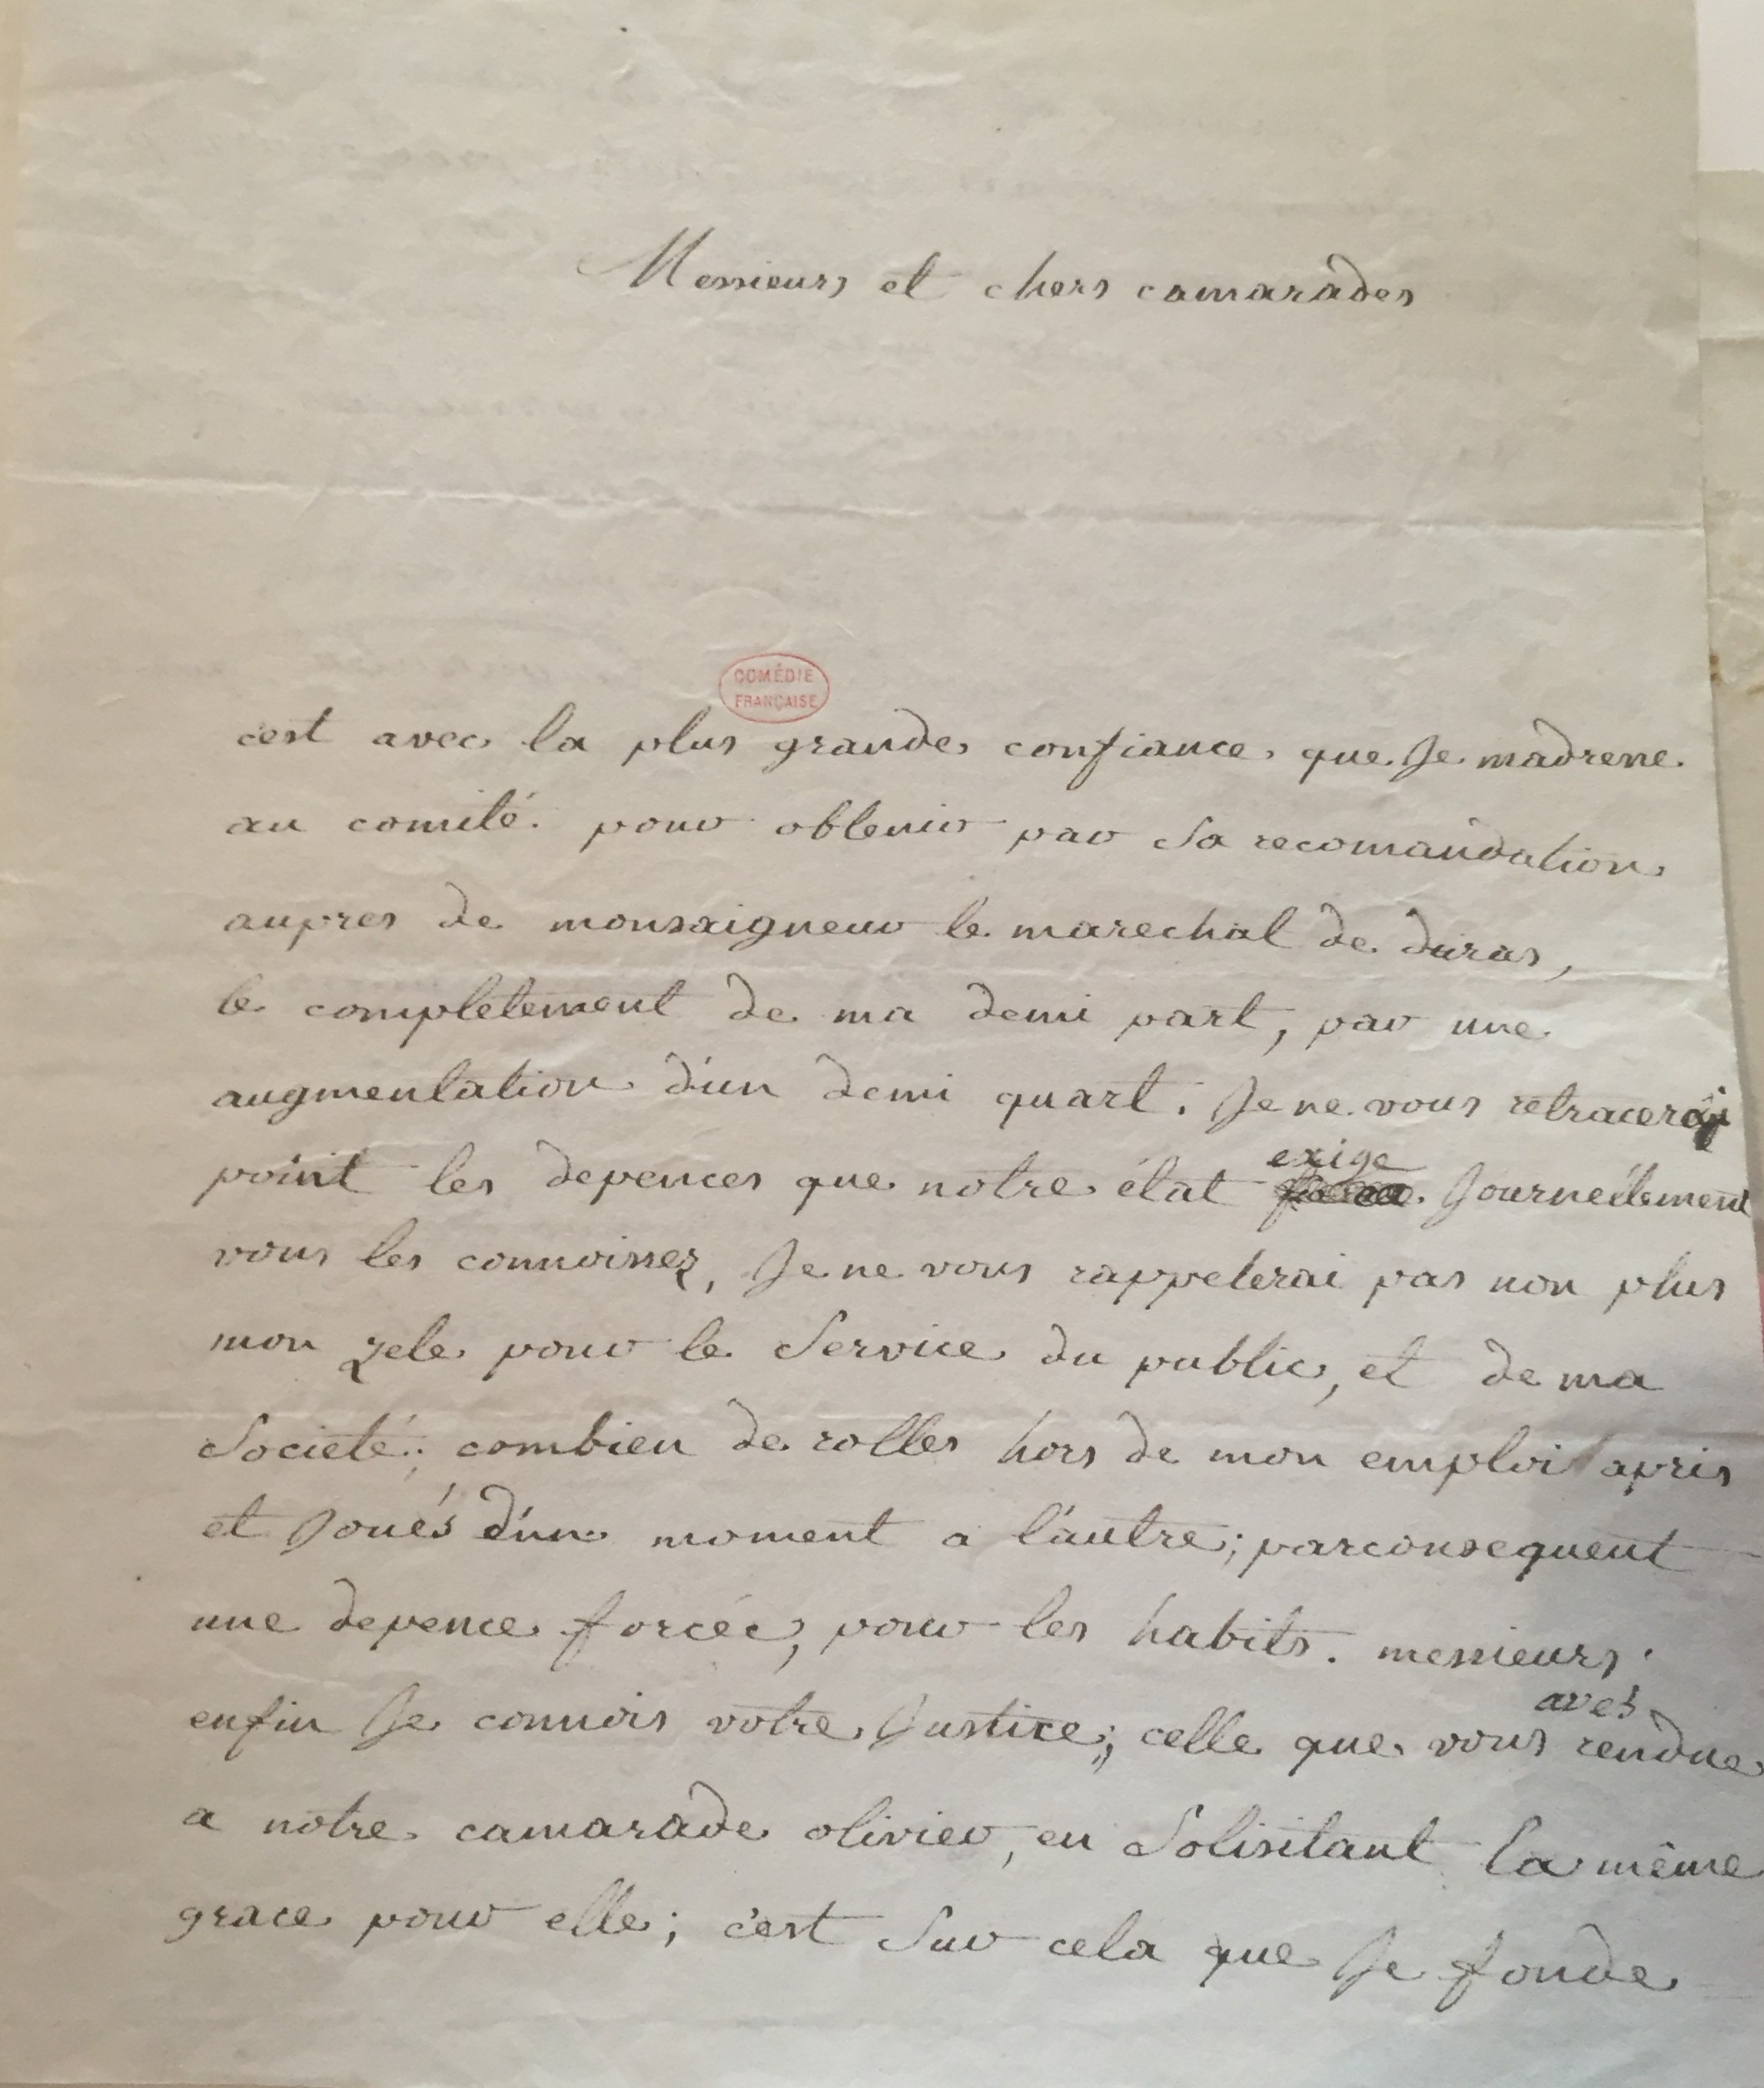 Messieurs et chers camarades
COMÉDIE
FRANÇAISE
c'est avec la plus grande confiance que Je madresse
au comité pour obtenir par Sa recomandation
aupres de monsaigneur le marechal de duras,
le completement de ma demi part, par une
augmentation d'un demi quart. Je ne vous retracerai
exige
point les depences que notre état Journéllement
vous les connoissez, Je ne vous rappelerai pas non plus
mon zele pour le Service du public, et de ma
Societé; combien de rolles hors de mon emploi apris
et Joués d'un moment a l'autre; parconsequent
une depence forcée, pour les habits. messieurs
avés
enfin Je connois votre Justice; celle que vous rendue
a notre camarade olivier, en Solisitant la même
grace pour elle; c'est Sur cela que Je fonde